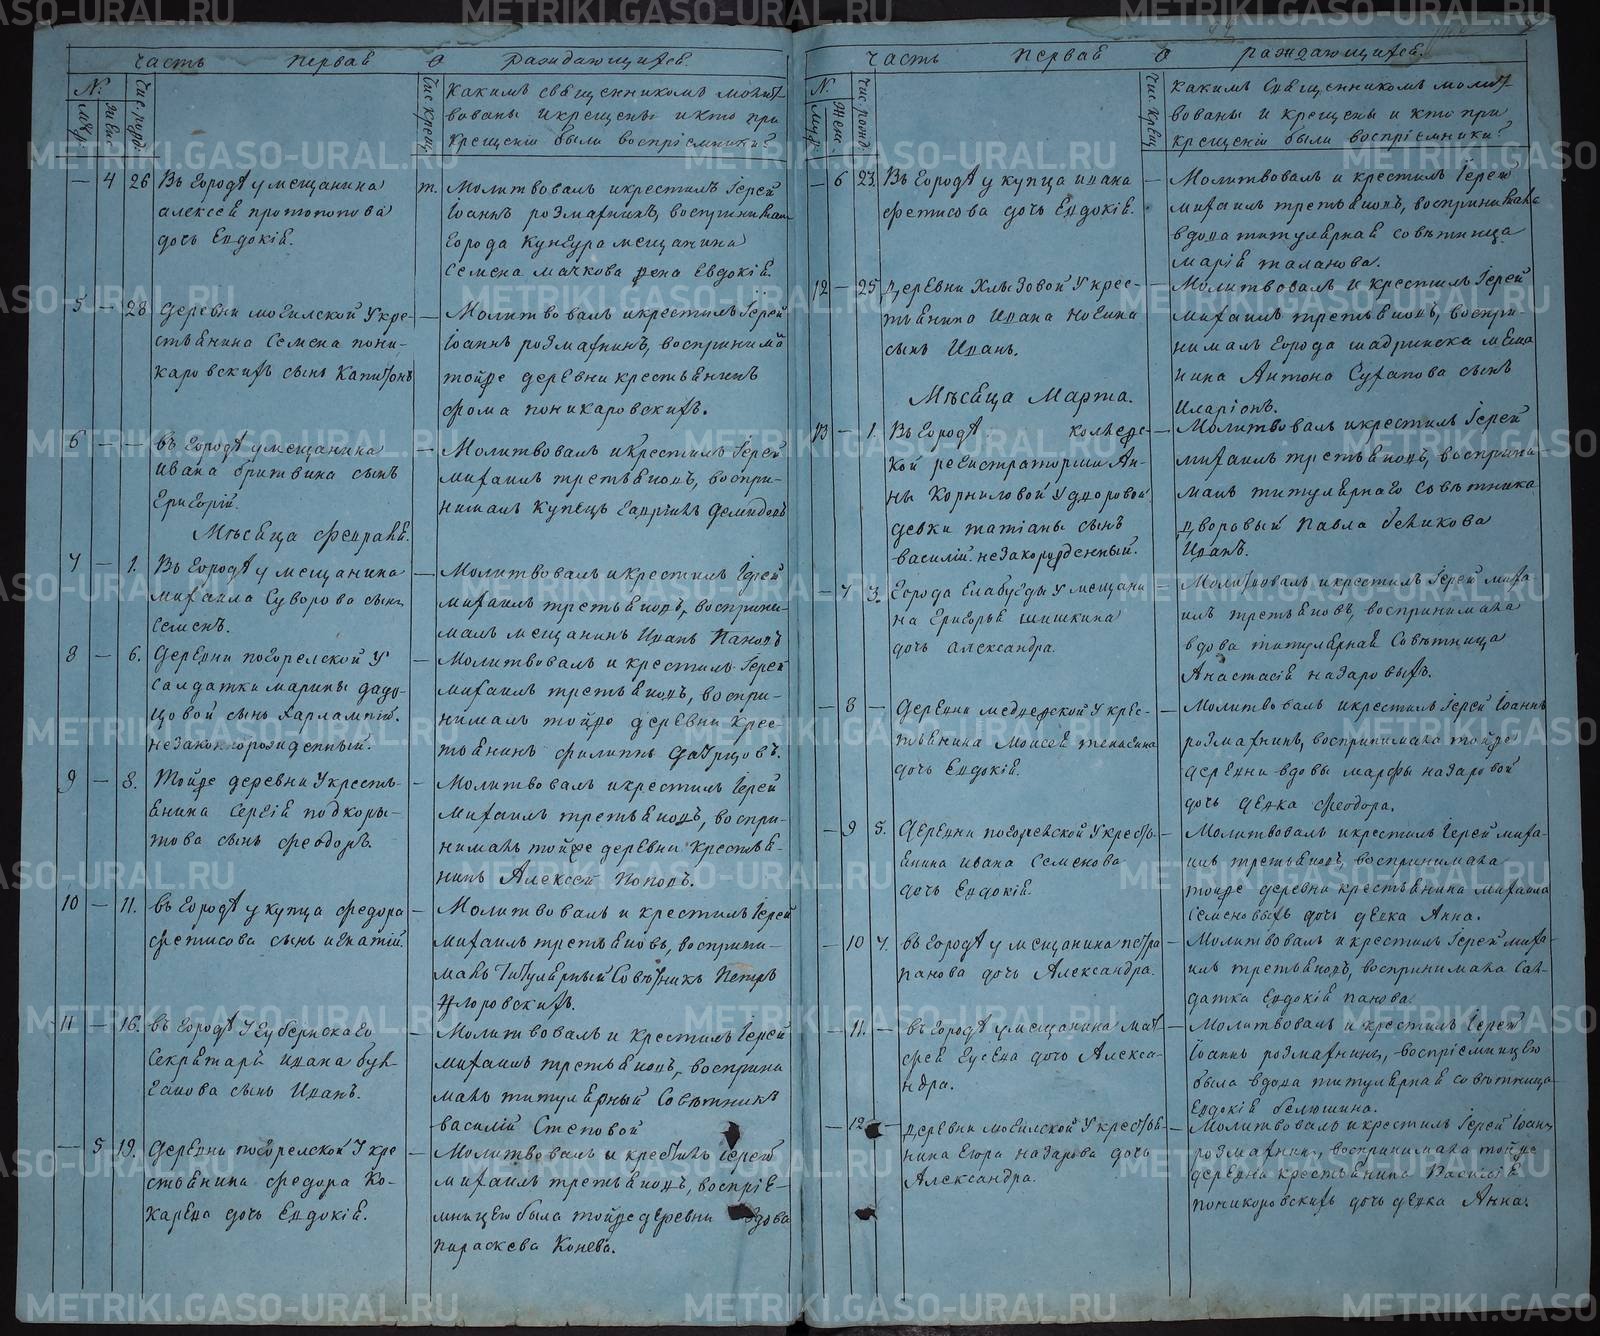 Часть первая о раждающихся.
№
муж.
женс.
Чис. рожд.
Чис. крещ.
Какимъ священникомъ молит-
вованы и крещены и кто при
крещеніи были воспріемники?
— 4 26 Въ городѣ у мещанина
алексея протопопова
дочь Евдокія.
т. Молитвовалъ и крестилъ Іерей
Іоаннъ
города Кунгура мещанина
Семена мачкова жена Евдокія.
5 — 28 деревни могилской у кре-
стьянина Семена пони-
каровскихъ сынъ Капитонъ
— Молитвовалъ и крестилъ Іерей
Іоаннъ воспринима
тойже деревни крестьянинъ
фома поникаровскихъ.
6 — — въ городѣ у мещанина
ивана бритвина сынъ
григорій.
— Молитвовалъ и крестилъ Іерей
михаилъ третьяковъ, воспри-
нималъ купецъ
Мѣсяца февраля.
7 — 1. Въ городѣ у мещанина
михаила Суворова сынъ
Семенъ.
— Молитвовалъ и крестилъ Іерей
михаилъ третьяковъ, восприни-
малъ мещанинъ Иванъ Пановъ
8 — 6. деревни погорелской у
салдатки марины
сынъ Харлампій.
незаконнорожденный.
— Молитвовалъ и крестилъ Іерей
михаилъ третьяковъ, воспри-
нималъ тойже деревни крес-
тьянинъ филиппъ
9 — 8. Тойже деревни у кресть-
янина Сергія подкоры-
това сынъ феодоръ.
— Молитвовалъ и крестилъ Іерей
михаилъ третьяковъ, воспри-
нималъ тойже деревни крестья-
нинъ Алексей Поповъ.
10 — 11. въ городѣ у купца федора
фетисова сынъ игнатій.
— Молитвовалъ и крестилъ Іерей
михаилъ третьяковъ, восприни-
малъ Титулярный Совѣтникъ Петръ
11 — 16. въ городѣ у губернскаго
Секретаря ивана бул-
гакова сынъ Иванъ.
— Молитвовалъ и крестилъ Іерей
михаилъ третьяковъ, восприни
малъ титулярный Совѣтникъ
василій Степовой
— 5 19. деревни погорелской у кре
стьянина федора Ко-
карева дочь Евдокія.
— Молитвовалъ и крестилъ Іерей
михаилъ третьяковъ, воспріе-
мницею была тойже деревни вдова
параскева Конева.
Часть первая о раждающихся.
№
муж.
женс.
Чис. рожд.
Чис. крещ.
Какимъ Священникомъ молит-
вованы и крещены и кто при
крещеніи были воспріемники?
— 6 23. Въ городѣ у купца ивана
фетисова дочь Евдокія.
— Молитвовалъ и крестилъ Іерей
михаилъ третьяковъ, воспринимала
вдова титулярная совѣтница
марія таланова.
12 — 25 деревни Хлызовой у крес-
тьянина Ивана Ногина
сынъ Иванъ.
— Молитвовалъ и крестилъ Іерей
михаилъ третьяковъ, воспри-
нималъ города шадринска меща
нина Антона Сынъ
Иларіонъ.
Мѣсяца Марта.
13 — 1. Въ городѣ колеже-
кой регистраторши Ан-
ны Корниловой у дворовой
девки татіаны сынъ
василій незакорожденный.
— Молитвовалъ и крестилъ Іерей
михаилъ третьяковъ, восприни
малъ титулярнаго совѣтника
дворовый Павла беликова
Иванъ.
— 7 3. города Елабуги у мещани
на григорья шишкина
дочь александра.
Молитвовалъ и крестилъ Іерей миха-
илъ третьяковъ, воспринимала
вдова титулярная Совѣтница
Анастасія назаровыхъ.
— 8 — деревни медведской у крес-
тьянина Моисея
дочь Евдокія.
— Молитвовалъ и крестилъ Іерей Іоаннъ
воспринимала тойже
деревни вдовы марфы назаровой
дочь девка феодора.
— 9 5. деревни погорелской у кресть-
янина ивана Семенова
дочь Евдокія.
— Молитвовалъ и крестилъ Іерей миха-
илъ третьяковъ, воспринимала
тойже деревни крестьянина михаила
Семеновыхъ дочь девка Анна.
— 10 7. въ городѣ у мещанина петра
панова дочь Александра.
— Молитвовалъ и крестилъ Іерей миха-
илъ третьяковъ, воспринимала сал-
датка Евдокія панова.
— 11. — въ городѣ у мещанина мат
фея Гусева дочь Алекса-
ндра.
— Молитвовалъ и крестилъ Іерей
Іоаннъ воспріемницею
была вдова титулярная совѣтница
Евдокія белюшина.
— 12 — деревни могилской у крестья-
нина Егора назарова дочь
Александра.
— Молитвовалъ и крестилъ Іерей Іоаннъ
воспринимала тойже
деревни крестьянина Василія
поникоровскихъ дочь девка Анна.
METRIKI.GASO-URAL.RU